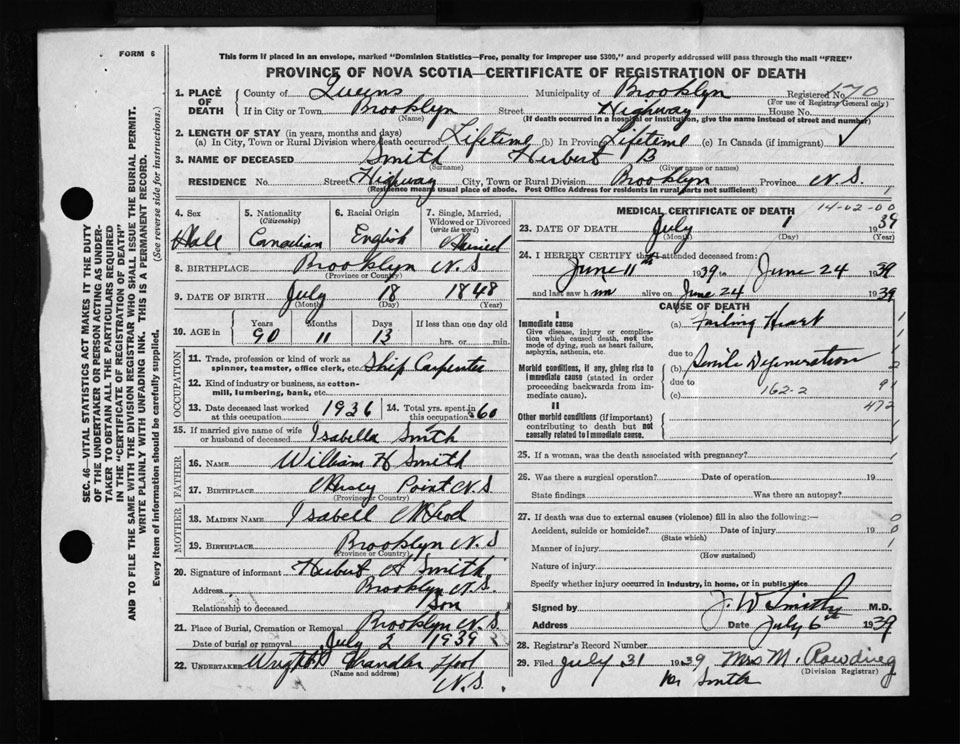 FORM 6
This form if placed in an envelope, marked "Dominion Statistics—Free, penalty for improper use $300," and properly addressed will pass through the mail "FREE"
PROVINCE OF NOVA SCOTIA—CERTIFICATE OF REGISTRATION OF DEATH
SEC. 46—VITAL STATISTICS ACT MAKES IT THE DUTY
OF THE UNDERTAKER OR PERSON ACTING AS UNDER-
TAKER TO OBTAIN ALL THE PARTICULARS REQUIRED
IN THE "CERTIFICATE OF REGISTRATION OF DEATH"
AND TO FILE THE SAME WITH THE DIVISION REGISTRAR WHO SHALL ISSUE THE BURIAL PERMIT.
WRITE PLAINLY WITH UNFADING INK. THIS IS A PERMANENT RECORD.
Every item of information should be carefully supplied. (See reverse side for instructions.)
1. PLACE OF DEATH County of Queens Municipality of Brooklyn Registered No. 70
(For use of Registrar General only)
If in City or Town Brooklyn Street Highway House No.
(Name) (If death occurred in a hospital or institution, give the name instead of street and number)
2. LENGTH OF STAY (in years, months and days)
(a) In City, Town or Rural Division where death occurred Lifetime (b) In Province Lifetime (c) In Canada (if immigrant) ✓
3. NAME OF DECEASED Smith Herbert B
(Surname) (Given name or names)
RESIDENCE No. Street Highway City, Town or Rural Division Brooklyn Province N.S.
(Residence means usual place of abode. Post Office Address for residents in rural parts not sufficient)
4. Sex Male
5. Nationality (Citizenship) Canadian
6. Racial Origin English
7. Single, Married, Widowed or Divorced (write the word) Married
8. BIRTHPLACE Brooklyn N S
(Province or Country)
9. DATE OF BIRTH July 18 1848
(Month) (Day) (Year)
10. AGE in Years 90 Months 11 Days 13 If less than one day old hrs. or min.
OCCUPATION
11. Trade, profession or kind of work as spinner, teamster, office clerk, etc. Ship Carpenter
12. Kind of industry or business, as cotton-mill, lumbering, bank, etc.
13. Date deceased last worked at this occupation 1936
14. Total yrs. spent in this occupation 60
15. If married give name of wife or husband of deceased Isabella Smith
FATHER
16. NAME William H Smith
17. BIRTHPLACE Point N S
(Province or Country)
MOTHER
18. MAIDEN NAME Isabell McLeod
19. BIRTHPLACE Brooklyn N.S
(Province or Country)
20. Signature of informant Herbert H Smith
Address Brooklyn N.S.
Relationship to deceased Son
21. Place of Burial, Cremation or Removal Brooklyn N.S.
Date of burial or removal July 2 1939
22. UNDERTAKER Wright Chandler Lpool
(Name and address) N.S.
MEDICAL CERTIFICATE OF DEATH 14-02-00
23. DATE OF DEATH July 1 1939
(Month) (Day) (Year)
24. I HEREBY CERTIFY that I attended deceased from:
June 11th 1939 to June 24 1939
and last saw him alive on June 24 1939
CAUSE OF DEATH
I
Immediate cause
Give disease, injury or complication which caused death, not the mode of dying, such as heart failure, asphyxia, asthenia, etc.
(a) Failing Heart
due to
Morbid conditions, if any, giving rise to immediate cause (stated in order proceeding backwards from immediate cause).
(b) Senile Degeneration
due to
(c) 162-2
472
II
Other morbid conditions (if important) contributing to death but not causally related to immediate cause.
25. If a woman, was the death associated with pregnancy?
26. Was there a surgical operation? Date of operation 19
State findings Was there an autopsy?
27. If death was due to external causes (violence) fill in also the following:—
Accident, suicide or homicide? Date of injury 19
(State which)
Manner of injury
(How sustained)
Nature of injury
Specify whether injury occurred in industry, in home, or in public place
Signed by J. W Smith M.D.
Address Date July 6th 1939
28. Registrar's Record Number
29. Filed July 31 1939 Mrs M.
(Division Registrar)
Smith